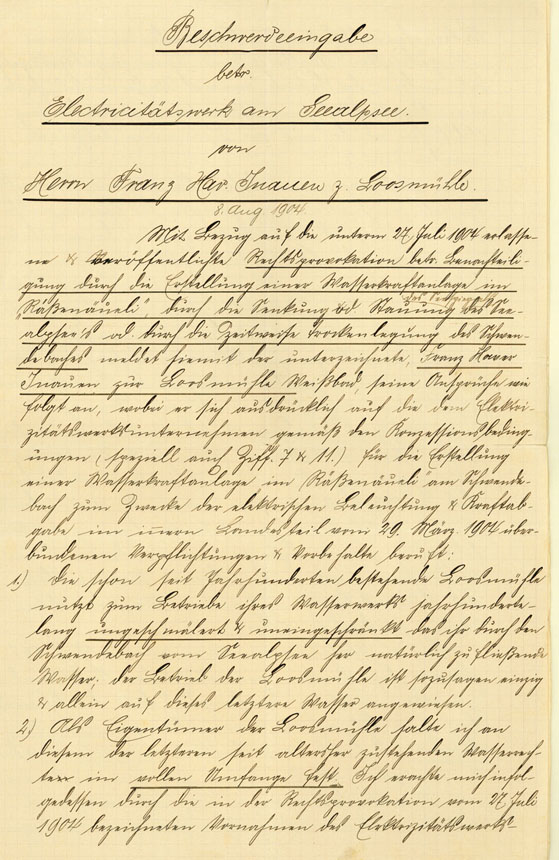 Beschwerdeeingabe
betr.
Electricitätswerk am Seealpsee.
von
Herrn Franz Xav. Inauen z. Loosmühle.
8. Aug. 1904
Mit Bezug auf die unterm 27. Juli 1904 erlasse-
ne & veröffentlichte Rechtsprovokation betr. Benachteili-
gung durch die Erstellung einer Wasserkraftanlage im
"Räßenäueli" durch die Senkung od. Stauung des See-
alpsee's od. durch die Zeitweise Trockenlegung des Schwen-
debaches meldet hiemit der unterzeichnete, Franz Xaver
Inauen zur Loosmühle Weißbad, seine Ansprüche wie
folgt an, wobei er sich ausdrücklich auf die dem Elektri-
zitätswerksunternehmen gemäß den Konzessionsbeding-
ungen (speziell auch Ziff. 7 & 11.) für die Erstellung
einer Wasserkraftanlage im "Räßenäueli" am Schwende-
bach zum Zwecke der elektrischen Beleuchtung & Kraftab-
gabe im innern Landesteil vom 29. März 1904 über-
bundenen Verpflichtungen & Vorbehalte beruft:
1.) Die schon seit Jahrhunderten bestehende Loosmühle
nützt zum Betriebe ihres Wasserwerks jahrhunderte-
lang ungeschmälert & uneingeschränkt das ihr durch den
Schwendebach vom Seealpsee her natürlich zufließende
Wasser; der Betrieb der Loosmühle ist sozusagen einzig
& allein auf dieses letztere Wasser angewiesen.
2.) Als Eigentümer der Loosmühle halte ich an
diesem der letzteren seit altersher zustehenden Wasserrech-
ten im vollen Umfange fest. Ich erachte mich infol-
gedessen durch die in der Rechtsprovokation vom 27. Juli
1904 bezeichneten Vornahmen des Elektrizitätswerks-